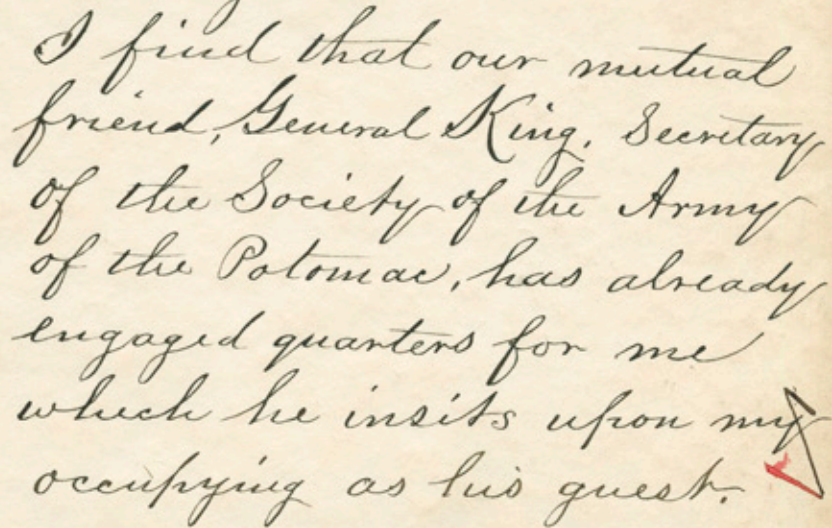 I find that our mutual
friend, General King, Secretary
of the Society of the Army
of the Potomac, has already
engaged quarters for me
which he insits upon my
occupying as his guest.